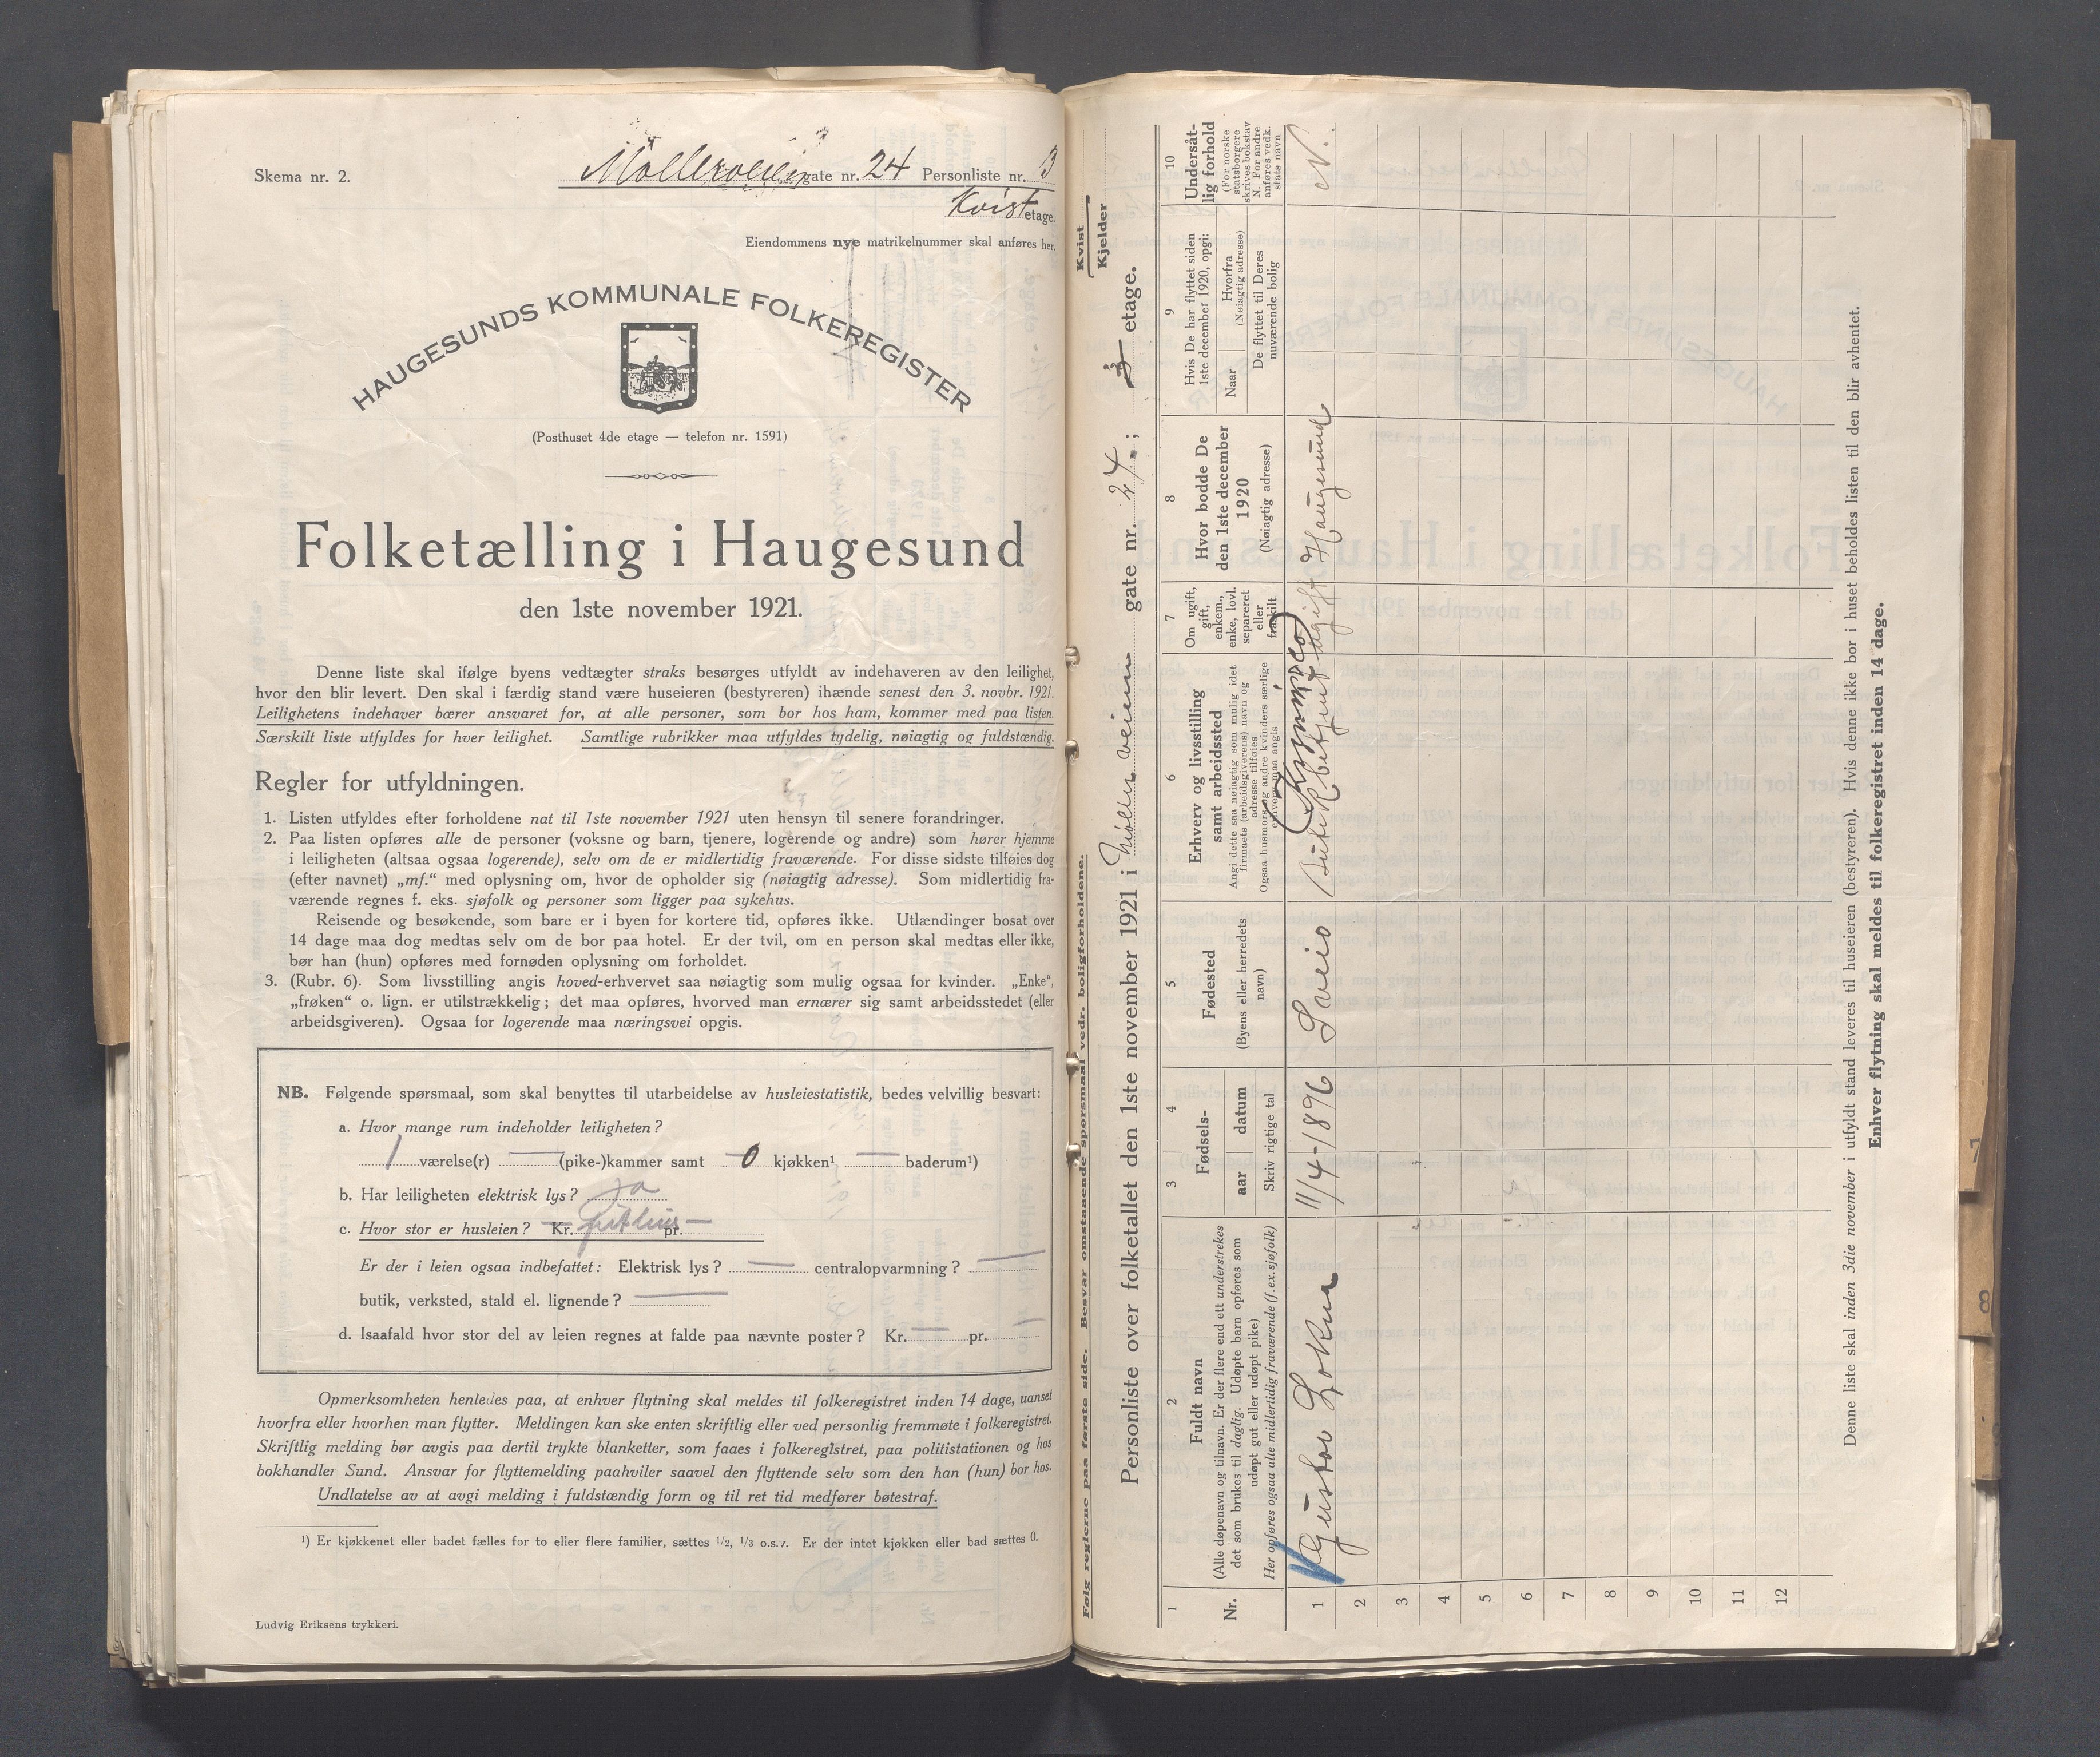 Skema nr. 2.
Møllerveien gate nr. 24 Personliste nr. 3
Kvist etage.
Eiendommens nye matrikelnummer skal anføres her.
HAUGESUNDS KOMMUNALE FOLKEREGISTER
(Posthuset 4de etage — telefon nr. 1591)
Folketælling i Haugesund
den 1ste november 1921.
Denne liste skal ifølge byens vedtægter straks besørges utfyldt av indehaveren av den leilighet,
hvor den blir levert. Den skal i færdig stand være huseieren (bestyreren) ihænde senest den 3. novbr. 1921.
Leilighetens indehaver bærer ansvaret for, at alle personer, som bor hos ham, kommer med paa listen.
Særskilt liste utfyldes for hver leilighet. Samtlige rubrikker maa utfyldes tydelig, nøiagtig og fuldstændig.
Regler for utfyldningen.
1. Listen utfyldes efter forholdene nat til 1ste november 1921 uten hensyn til senere forandringer.
2. Paa listen opføres alle de personer (voksne og barn, tjenere, logerende og andre) som hører hjemme
i leiligheten (altsaa ogsaa logerende), selv om de er midlertidig fraværende. For disse sidste tilføies dog
(efter navnet) „mf.“ med oplysning om, hvor de opholder sig (nøiagtig adresse). Som midlertidig fra-
værende regnes f. eks. sjøfolk og personer som ligger paa sykehus.
Reisende og besøkende, som bare er i byen for kortere tid, opføres ikke. Utlændinger bosat over
14 dage maa dog medtas selv om de bor paa hotel. Er der tvil, om en person skal medtas eller ikke,
bør han (hun) opføres med fornøden oplysning om forholdet.
3. (Rubr. 6). Som livsstilling angis hoved-erhvervet saa nøiagtig som mulig ogsaa for kvinder. „Enke“,
„frøken“ o. lign. er utilstrækkelig; det maa opføres, hvorved man ernærer sig samt arbeidsstedet (eller
arbeidsgiveren). Ogsaa for logerende maa næringsvei opgis.
NB. Følgende spørsmaal, som skal benyttes til utarbeidelse av husleiestatistik, bedes velvillig besvart:
a. Hvor mange rum indeholder leiligheten?
1 værelse(r) — (pike-)kammer samt 0 kjøkken¹ — baderum¹)
b. Har leiligheten elektrisk lys? ja
c. Hvor stor er husleien? Kr. — pr. —
Er der i leien ogsaa indbefattet: Elektrisk lys? — centralopvarmning? —
butik, verksted, stald el. lignende? —
d. Isaafald hvor stor del av leien regnes at falde paa nævnte poster? Kr. — pr. —
Opmerksomheten henledes paa, at enhver flytning skal meldes til folkeregistret inden 14 dage, uanset
hvorfra eller hvorhen man flytter. Meldingen kan ske enten skriftlig eller ved personlig fremmøte i folkeregistret.
Skriftlig melding bør avgis paa dertil trykte blanketter, som faaes i folkeregistret, paa politistationen og hos
bokhandler Sund. Ansvar for flyttemelding paahviler saavel den flyttende selv som den han (hun) bor hos.
Undlatelse av at avgi melding i fuldstændig form og til ret tid medfører bøtestraf.
¹) Er kjøkkenet eller badet fælles for to eller flere familier, sættes 1/2, 1/3 o.s.v. Er der intet kjøkken eller bad sættes 0.
Ludvig Eriksens trykkeri.
Følg reglerne paa første side. Besvar omstaaende spørsmaal vedr. boligforholdene.
Kvist
Kjelder
Personliste over folketallet den 1ste november 1921 i Møllerveien gate nr. 24; 3 etage.
1
Nr.
2
Fuldt navn
(Alle døpenavn og tilnavn. Er der flere end ett understrekes
det som brukes til daglig. Udøpte barn opføres som
udøpt gut eller udøpt pike)
Her opføres ogsaa alle midlertidig fraværende (f. ex. sjøfolk)
3 4
Fødsels-
aar datum
Skriv rigtige tal
5
Fødested
(Byens eller herredets
navn)
6
Erhverv og livsstilling
samt arbeidssted
Angi dette saa nøiagtig som mulig idet
firmaets (arbeidsgiverens) navn og
adresse tilføies
Ogsaa husmors og andre kvinders særlige
erhverv maa angis
7
Om ugift,
gift,
enkem.,
enke, lovl.
separeret
eller
fraskilt
8
Hvor bodde De
den 1ste december
1920
(Nøiagtig adresse)
9
Hvis De har flyttet siden
1ste december 1920, opgi:
Naar
Hvorfra
(Nøiagtig adresse)
De flyttet til Deres
nuværende bolig
10
Undersåt-
lig forhold
(For norske
statsborgere
skrives bokstav
N. For andre
anføres vedk.
stats navn
1 Gustav Lokna 11/4-1896 Sveio Butikkbetjent ugift Haugesund N.
2
3
4
5
6
7
8
9
10
11
12
Denne liste skal inden 3die november i utfyldt stand leveres til huseieren (bestyreren). Hvis denne ikke bor i huset beholdes listen til den blir avhentet.
Enhver flytning skal meldes til folkeregistret inden 14 dage.
7
8